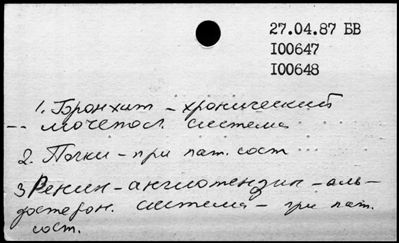 27.04.87 БВ
I00647
I00648
1. Бронхит – хронический
-- мочепол. система
2. Почки – при пат. сост
3 Ренин – ангиотензин – аль-
достерон. система – при пат.
сост.